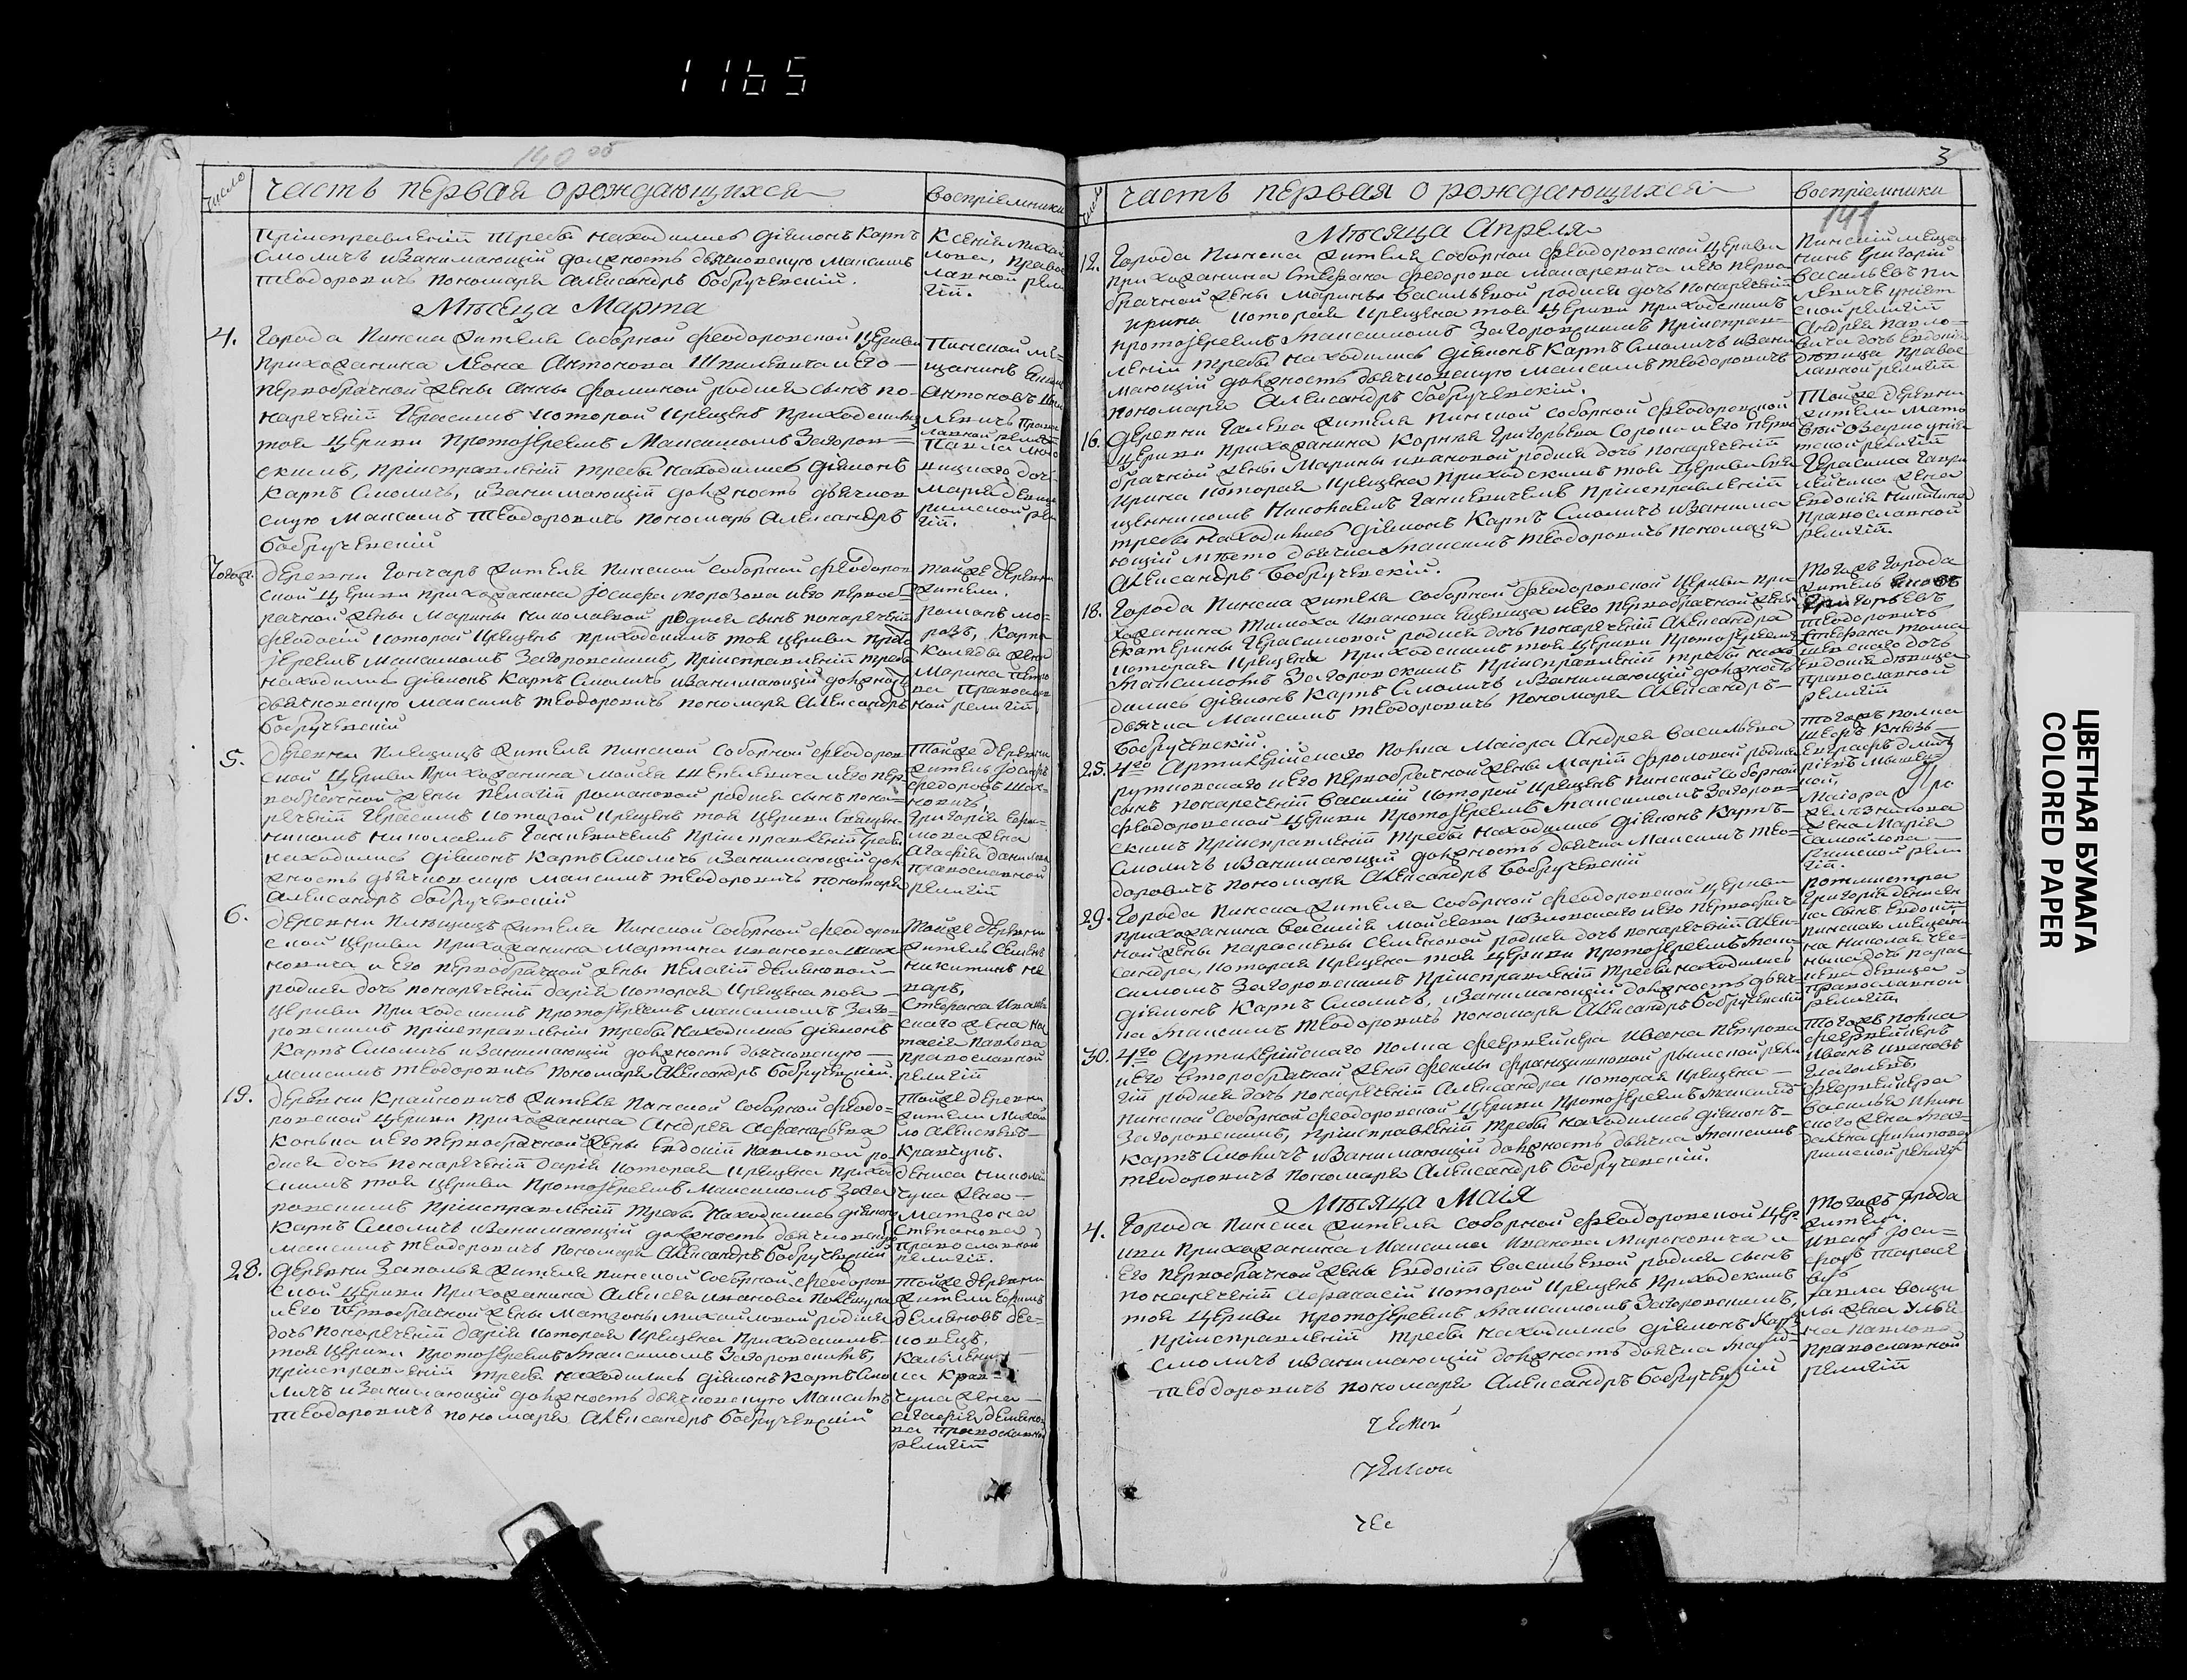 1165
140 об
число
часть первая о рождающихся
воспріемники
Приисправленій требы находились діяконъ Карпъ
Смоличъ изанимающій должность дьячковскую Максимъ
Теодоровичъ пономарь Александръ Бобручевскій.
Ксенія
лова, Право
лавной рели
гіи.
Мѣсяца Марта
4.
Города Пинска жителя Соборной Феодоровской Церкви
прихожанина Леона Антонова Шпилевича и его
первобрачной жены Анны Фоминой родися сынъ по-
нареченій Герасимъ которой крещенъ приходскимъ
той Церкви Протоіереемъ Максимомъ Загоров-
скимъ, приисправленій требы находились діяконъ
Карпъ Смоличъ, изанимающій должность дьячков
скую Максимъ Теодоровичъ пономарь Александръ
Бобручевскій
Пинской мѣ-
щанинъ
Антоновъ
левичъ
лавной религіи
Павла
ницкаго дочь
Марія
римской рел
гіи.
Тогож.
деревни Гончаръ жителя Пинской Соборной Феодоров
ской Церкви прихожанина Іосифа Морозова и его первоб
рачной жены Марины Николаевой родися сынъ понареченій
Феодосій которой крещенъ приходскимъ той Церкви прото
іереемъ Максимомъ Загоровскимъ, приисправленій требы
находились діяконъ Карпъ Смоличъ изанимающій должность
дьячковскую Максимъ Теодоровичъ пономарь Александръ
Бобручевскій
Тойже деревни
жители.
Романъ Мо-
розъ, Карпа
Коляды жена
Марина Петро
ва православ
ной религіи
5.
деревни Плещицъ жителя Пинской Соборной Феодоров
ской Церкви прихожанина Мойсея Шепелевича и его пер
вобрачной жены Пелагіи Романовой родися сынъ пона-
реченій Герасимъ которой крещенъ той Церкви священ-
никомъ Николаемъ Ганкевичемъ приисправленій требы
находились діяконъ Карпъ Смоличъ изанимающій дол
жность дьячковскую Максимъ Теодоровичъ пономарь
Александръ Бобручевскій
Тойже деревни
житель Іосифъ
Федоровъ Шах-
новичъ,
Григорія Ефи-
мова жена
Агафія Данилова
православной
религіи
6.
деревни Плещицъ жителя Пинской Соборной Феодоров
ской Церкви прихожанина Мартина Иванова Шах
новича и его первобрачной жены Пелагіи Демяновой
родися дочь понареченій Дарія которая крещена той
Церкви приходскимъ Протоіереемъ Максимомъ Заго-
ровскимъ приисправленій требы находились діяконъ
Карпъ Смоличъ изанимающій должность дьячковскую
Максимъ Теодоровичъ пономарь Александръ Бобручевскій.
Тойже деревни
житель Семенъ
Никитинъ
Стефана
скаго жена На
тасія Павлова
православной
религіи
19.
деревни Крайновичъ жителя Пинской Соборной Феодо-
ровской Церкви прихожанина Андрея Афанасьева
Конька и его первобрачной жены Евдокіи Павловой ро-
дися дочь понареченій Дарія которая крещена приход
скимъ той Церкви Протоіереемъ Максимомъ Заго
ровскимъ приисправленій требы находились діяконъ
Карпъ Смоличъ изанимающій должность дьячковскую
Максимъ Теодоровичъ пономарь Александръ Бобручевскій
Тойже деревни
жители Михай
ло Алексѣевъ
Кравчукъ.
Дениса Николай
чука жена
Матрона
Степанова
православной
религіи.
28.
деревни Заполья жителя Пинской Соборной Феодоров
ской Церкви прихожанина Алексея Иванова Полещука
и его первобрачной жены Матроны Михайловой родися
дочь понареченій Дарія которая крещена приходскимъ
той Церкви Протоіереемъ Максимомъ Загоровскимъ,
приисправленій требы находились діяконъ Карпъ Смо
личъ изанимающій должность дьячковскую Максимъ
Теодоровичъ пономарь Александръ Бобручевскій
Тойже деревни
жители Ефимъ
Демяновъ
Крав-
чука жена
Агафія Демяно
ва православной
религіи
3
число
часть первая о рождающихся
воспріемники
141
Мѣсяца Апреля
12.
Города Пинска жителя Соборной Феодоровской Церкви
прихожанина Стефана Федорова Макаревича и его перво
брачной жены Марины Васильевой родися дочь понареченій
Ирина которая крещена той Церкви приходскимъ
Протоіереемъ Максимомъ Загоровскимъ приисправ-
леній требы находились діяконъ Карпъ Смоличъ изани
мающій должность дьячковскую Максимъ Теодоровичъ
пономарь Александръ Бобручевскій.
Пинскій меща
нинъ Григорій
Васильевъ
левичъ уніят
ской религіи
Андрея Павло-
вича дочь Евдокія
дѣвица право
лавной религіи
16.
деревни Галева жителя Пинской Соборной Феодоровской
Церкви прихожанина Корнея Григорьева Сороки и его перво
брачной жены Марины Ивановой родися дочь понареченій
Ирина которая крещена приходскимъ той Церкви свя
щенникомъ Николаемъ Ганкевичемъ приисправленій
требы находились діяконъ Карпъ Смоличъ изанима
ющій мѣсто дьячка Максимъ Теодоровичъ пономарь
Александръ Бобручевскій.
Тойже деревни
жители Мато
вей Озарко уніят
ской религіи
Герасима Гаври
жена
Евдокія Никитина
православной
религіи.
18.
Города Пинска жителя Соборной Феодоровской Церкви при
хожанина Тимоха Иванова и его первобрачной жены
Екатерины Герасимовой родися дочь понареченій Александра
которая крещена приходскимъ той Церкви Протоіереемъ
Максимомъ Загоровскимъ приисправленій требы нахо
дились діяконъ Карпъ Смоличъ изанимающій должность
дьячка Максимъ Теодоровичъ пономарь Александръ
Бобручевскій.
Тогожъ города
житель
Григорьевъ
Теодоровичъ
Стефана Тома
шевскаго дочь
Евдокія дѣвица
православной
религіи
25.
4го Артилерійскаго полка Маіора Андрея Васильева
рутковскаго и его первобрачной жены Маріи Фроловой родися
сынъ понареченій Василій которой крещенъ Пинской Соборной
Феодоровской Церкви Протоіереемъ Максимомъ Загоров-
скимъ приисправленій требы находились діяконъ Карпъ
Смоличъ изанимающій должность дьячка Максимъ Тео-
доровичъ пономарь Александръ Бобручевскій
Тогожъ полка
Князь
Евграфъ Дмит
ріевъ
Маіора
жена Марія
Самойлова
Римской рели
гіи.
29.
Города Пинска жителя Соборной Феодоровской Церкви
прихожанина Василія Мойсеева Козловскаго и его первобрач
ной жены Парасковы Семеновой родися дочь понареченій Алек-
сандра, которая крещена той Церкви Протоіереемъ Мак-
симомъ Загоровскимъ приисправленій требы находились
діяконъ Карпъ Смоличъ, изанимающій должность дьяч-
ка Максимъ Теодоровичъ пономарь Александръ Бобручевскій
ротмистра
Григорія Денисен
ка сынъ Евдокій,
Пинскаго мещани
на Николая
дочь Парас
кева дѣвица
православной
религіи,
30.
4го Артилерійскаго полка Феервейкера Ивана Петрова
и его второбрачной жены Феклы Францишковой рымской рели
гіи родися дочь понареченій Александра которая крещена
Пинской Соборной Феодоровской Церкви Протоіереемъ Максимомъ
Загоровскимъ, приисправленій требы находились діяконъ
Карпъ Смоличъ изанимающій должность дьячка Максимъ
Теодоровичъ пономарь Александръ Бобручевскій.
Тогожъ полка
Феервейкеръ
Иванъ Ивановъ
Глаголевъ,
Феервейкера
Василья
скаго жена Маг-
далена Филипова
римской религіи
Мѣсяца Маія
4.
Города Пинска жителя Соборной Феодоровской Цер
кви прихожанина Максима Иванова Мироновича и
его первобрачной жены Евдокіи Васильевой родися сынъ
понареченій Афанасій которой крещенъ приходскимъ
той Церкви Протоіереемъ Максимомъ Загоровскимъ,
приисправленій требы находились діяконъ Карпъ
Смоличъ изанимающій должность дьячка Максимъ
Теодоровичъ пономарь Александръ Бобручевскій
Тогожъ града
жители.
Иванъ Іоси-
фовъ Тарасе
вичъ
Павла Вощи
лы жена Улья
на Павлова
православной
религіи
ЦВЕТНАЯ БУМАГА
COLORED PAPER